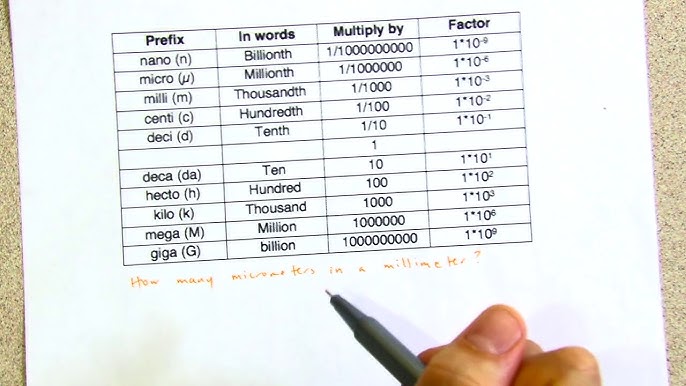 Prefix In words Multiply by Factor
nano (n) Billionth 1/1000000000 1*10⁻⁹
micro (µ) Millionth 1/1000000 1*10⁻⁶
milli (m) Thousandth 1/1000 1*10⁻³
centi (c) Hundredth 1/100 1*10⁻²
deci (d) Tenth 1/10 1*10⁻¹
1
deca (da) Ten 10 1*10¹
hecto (h) Hundred 100 1*10²
kilo (k) Thousand 1000 1*10³
mega (M) Million 1000000 1*10⁶
giga (G) billion 1000000000 1*10⁹
How many micrometers in a millimeter?